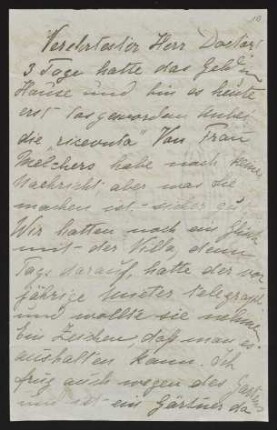 Verehrtester Herr Doctor!
3 Tage hatte das Geld im
Hause und bin es heute
erst losgeworden anbei
die "ricevuta" Von Frau
Melchers habe noch keine
Nachricht aber was Sie
machen ist - sicher gut
Wir hatten noch ein Glück
mit - der Villa, denn
Tags darauf hatte der vor
jährige Mieter telegraph
und wollte sie nehmen
Ein Zeichen, daß man es
aushalten kann. Ich
frug auch wegen des Gartens
und ist - ein Gärtner da